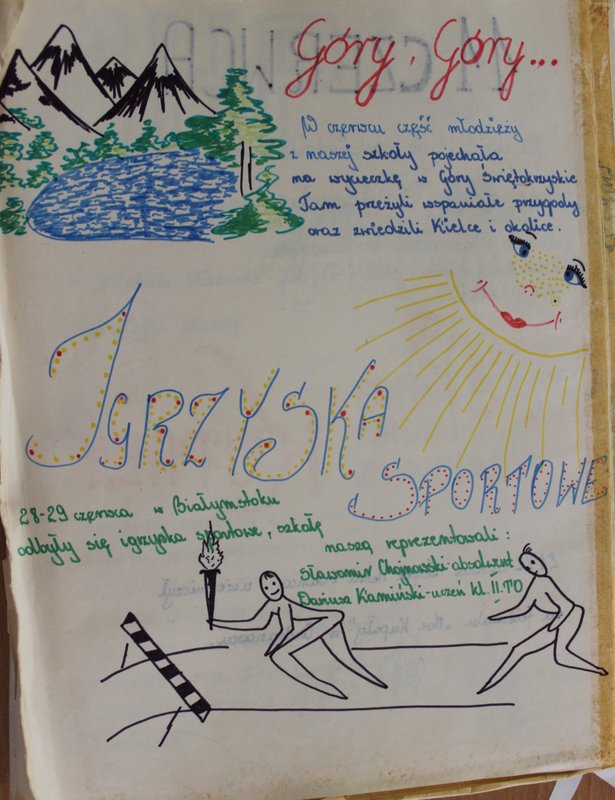 Góry, Góry...
W czerwcu część młodzieży
z naszej szkoły pojechała
na wycieczkę w Góry Świętokrzyskie
Tam przeżyli wspaniałe przygody
oraz zwiedzili Kielce i okolice.
IGRZYSKA
SPORTOWE
28-29 czerwca w Białymstoku
odbyły się igrzyska sportowe, szkołę
naszą reprezentowali:
Sławomir Chojnowski-absolwent
Dariusz Kamiński-uczeń kl. II TO